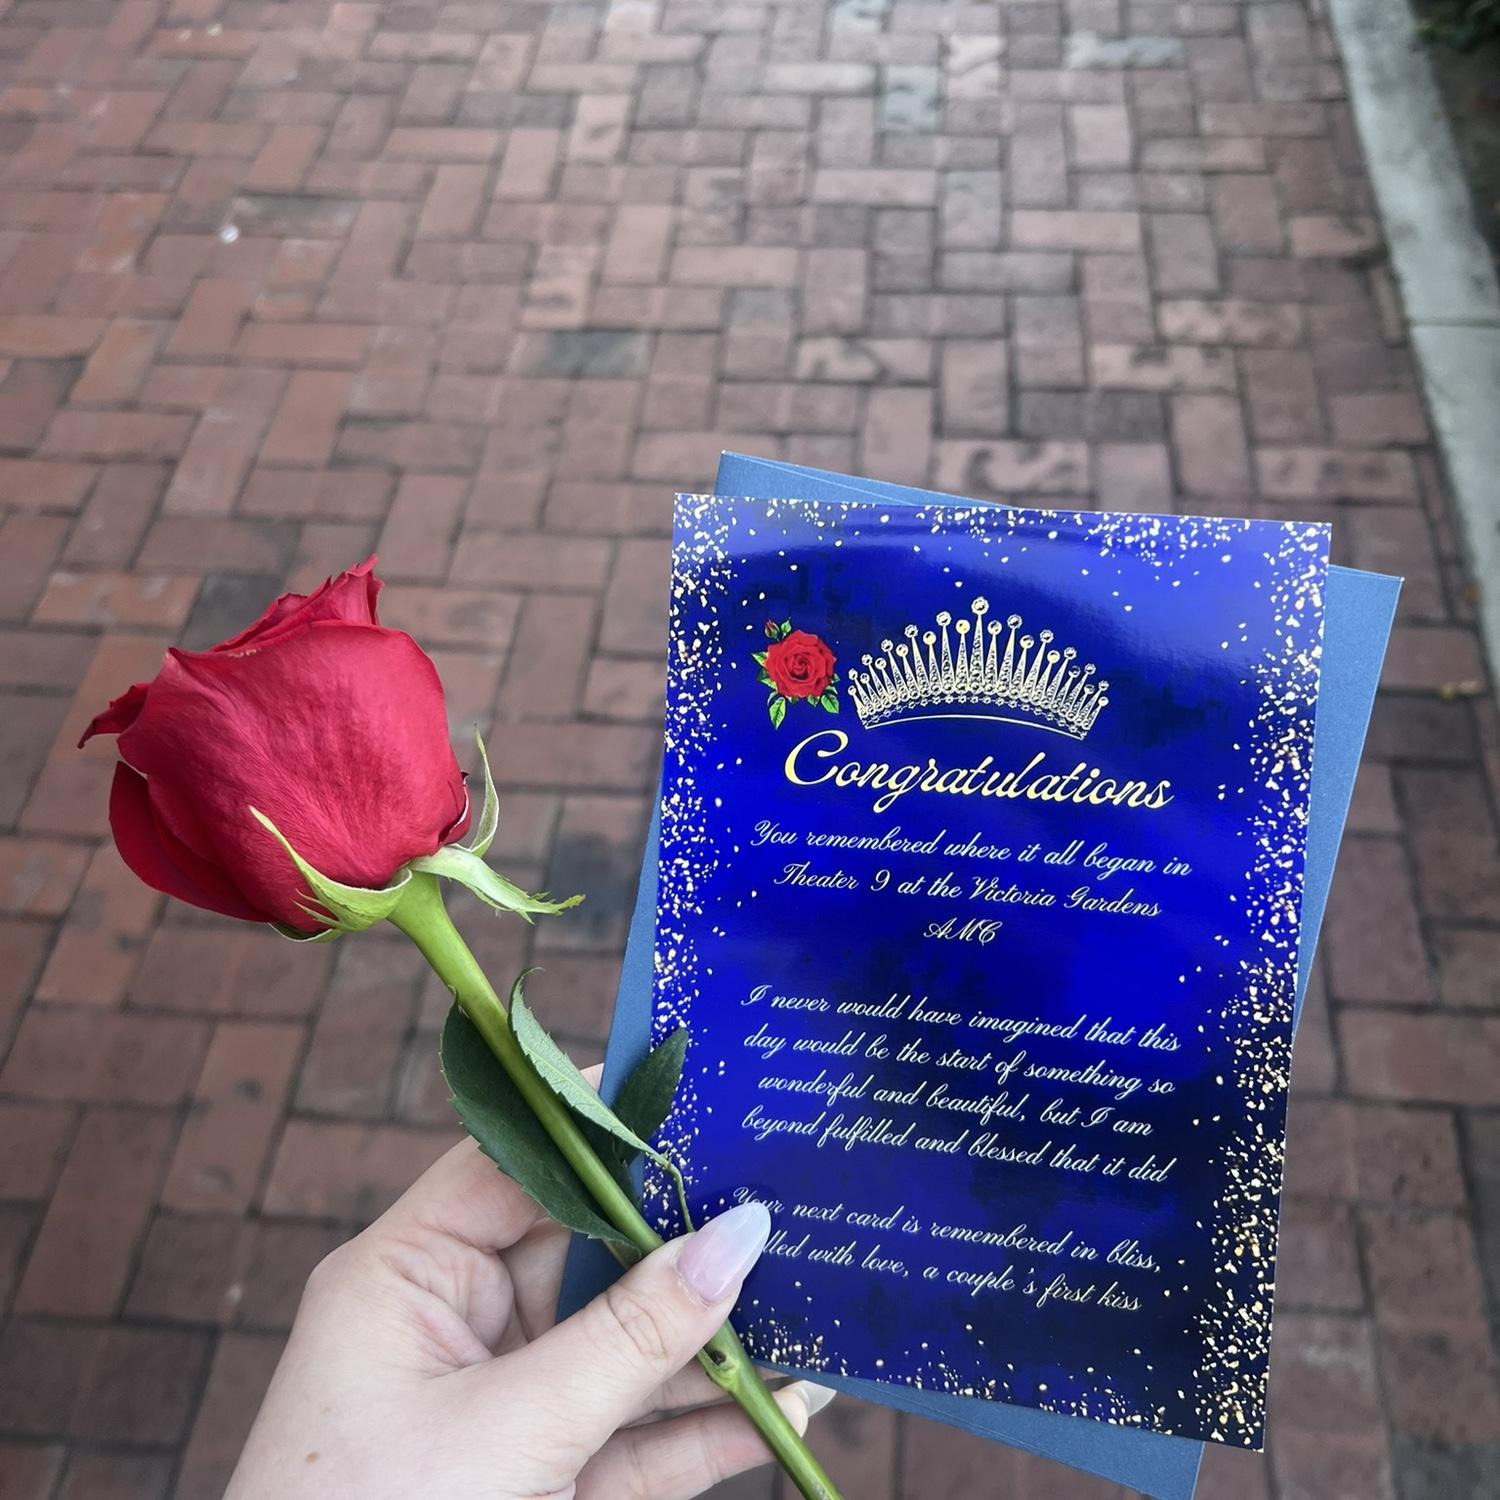 Congratulations
You remembered where it all began in
Theater 9 at the Victoria Gardens
AMC
I never would have imagined that this
day would be the start of something so
wonderful and beautiful, but I am
beyond fulfilled and blessed that it did
Your next card is remembered in bliss,
with love, a couple's first kiss